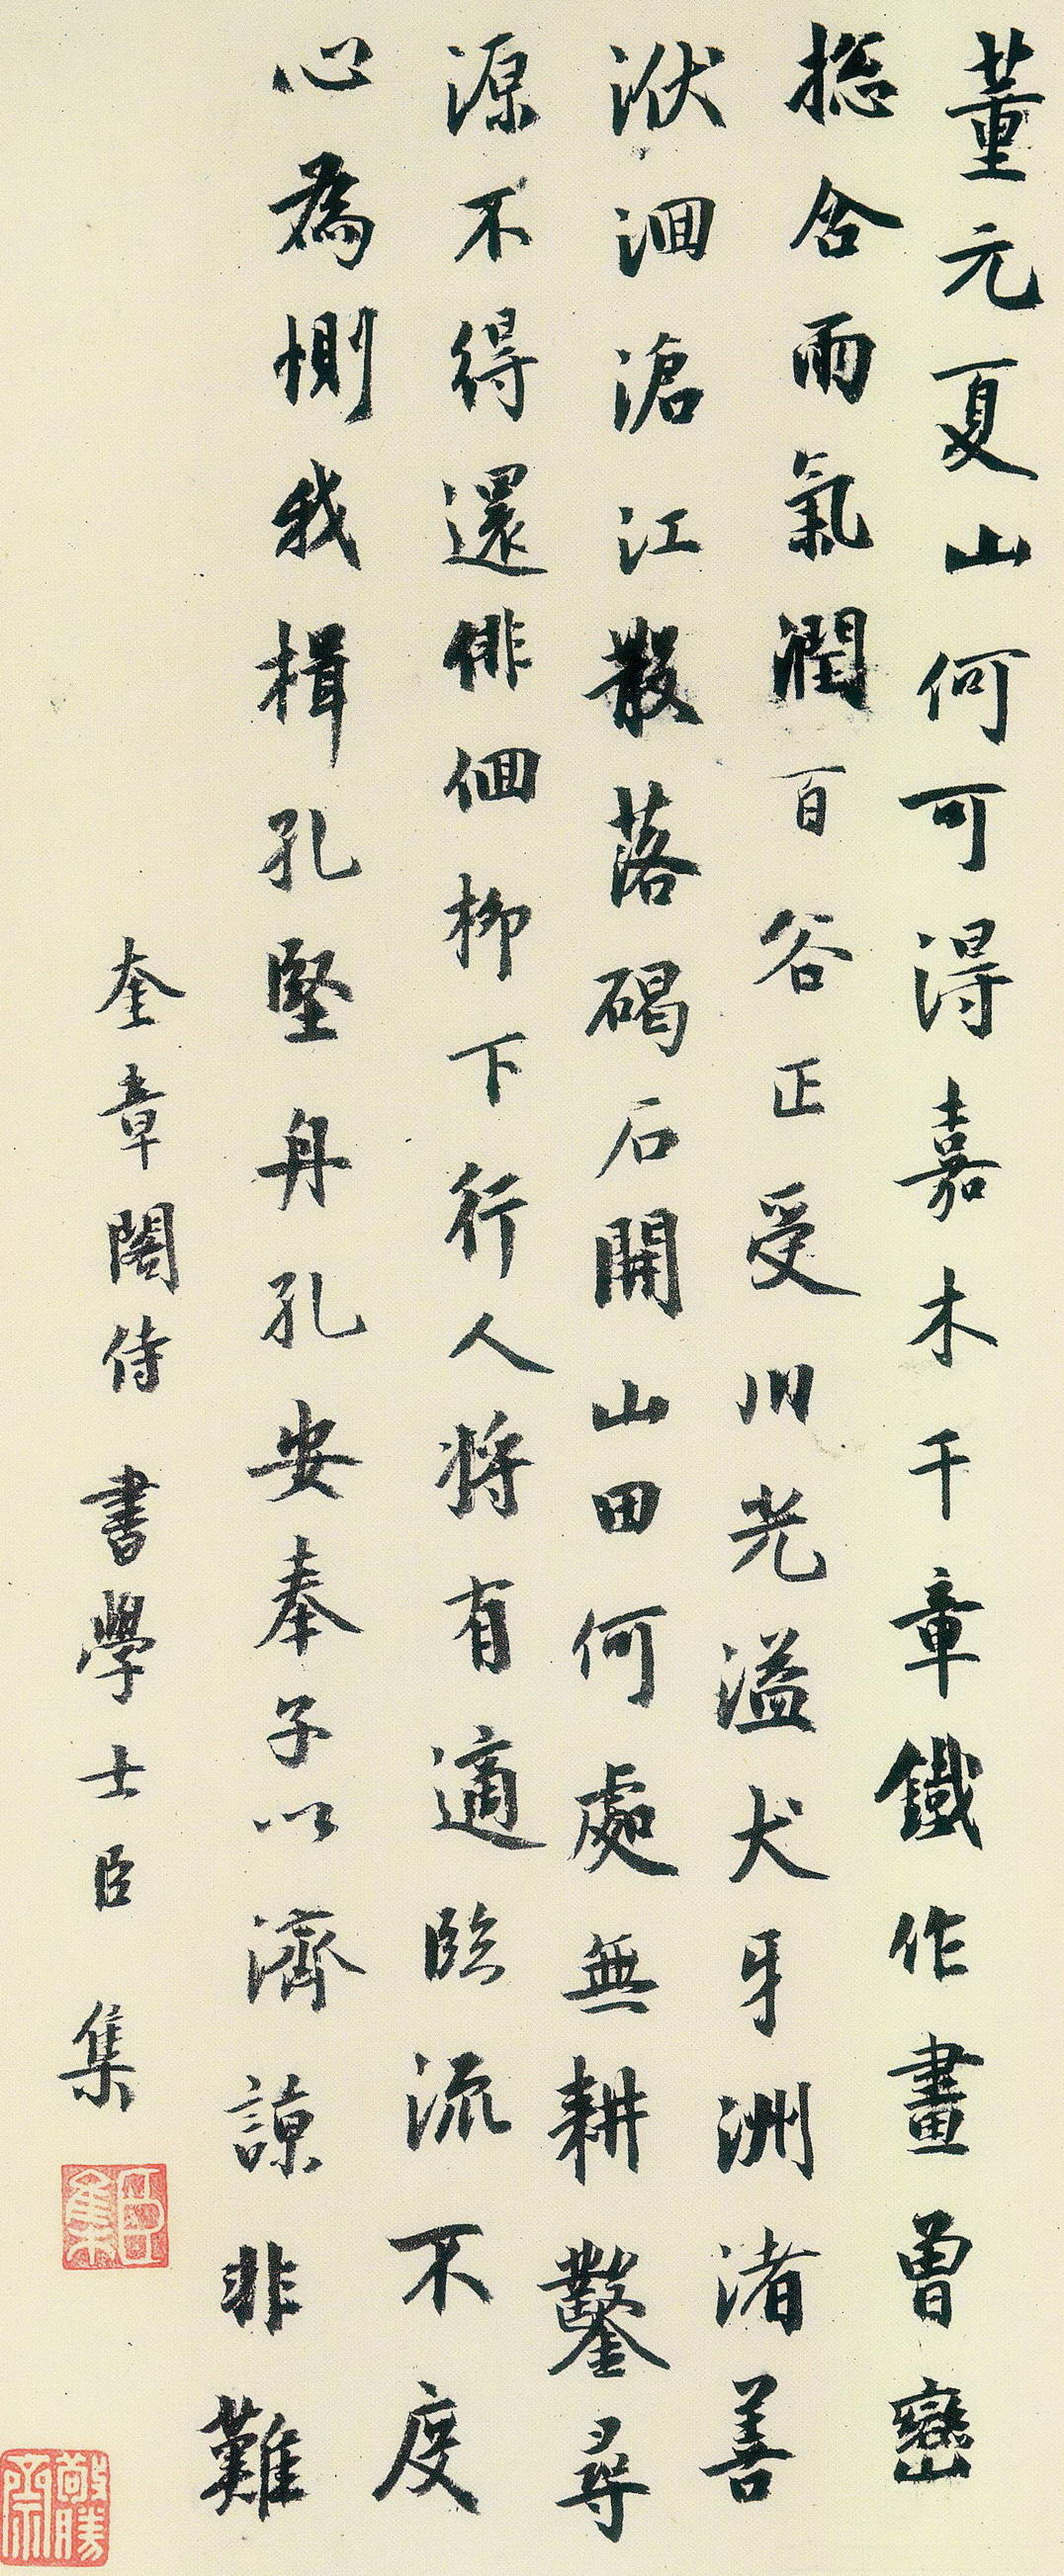 董元夏山何可淂嘉木千章鐵作畫曾巒
揔含雨氣潤百谷正受川光溢犬牙洲渚善
洑洄滄江散落碣石開山田何處無耕鑿尋
源不得還俳佪柳下行人將有適臨流不度
心為惻我楫孔堅舟孔安奉子以濟諒非難
奎章閣侍書學士臣集
臣集